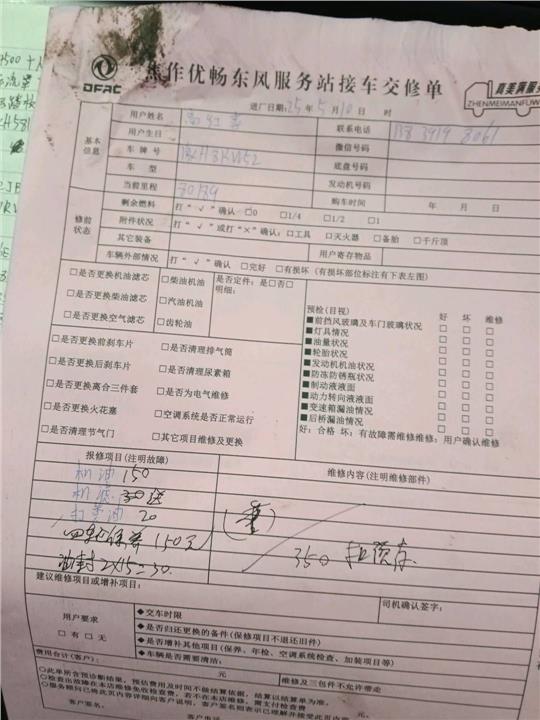 DFAC
焦作优畅东风服务站接车交修单
真美满服务
ZHENMEIMANFUWU
进厂日期:25年5月10日 时
基本信息
用户姓名
联系电话
用户生日
微信号码
车 牌 号
底盘号码
车 型
发动机号码
当前里程 80139
购车时间 年 月 日
修前状态
剩余燃料 打“√”确认:□0 □1/4 □1/2 □1
附件状况 打“√”或打“×”确认:□工具 □灭火器 □备胎 □千斤顶
其它装备
用户寄存物品
车辆外部情况 打“√”确认 □完好 □有损坏(有损坏部位标注有下表左图)
□是否更换机油滤芯 □柴油机油 是否定件:是□否□
□是否更换柴油滤芯 □汽油机油 明细:
□是否更换空气滤芯 □齿轮油
预检(目视) 好 坏 维修
■前挡风玻璃及车门玻璃状况 □ □ □
■灯具情况 □ □ □
■油量状况 □ □ □
■轮胎状况 □ □ □
■发动机机油状况 □ □ □
■防冻防锈瓶状况 □ □ □
■制动液液面 □ □ □
■动力转向液液面 □ □ □
■变速箱漏油情况 □ □ □
■后桥漏油情况 □ □ □
好:合格 坏:有故障需维修维修:用户确认维修
□是否更换前刹车片 □是否清理排气筒
□是否更换后刹车片 □是否清理尿素箱
□是否更换离合三件套 □是否为电气维修
□是否更换火花塞 □空调系统是否正常运行
□是否清理节气门 □其它项目维修及更换
报修项目(注明故障)
维修内容(注明维修部件)
机油 150
机滤 30 送
20
四轮保养 150元
油封 2×15=30.
350
建议维修项目或增补项目:
司机确认签字:
用户要求
□有 □无
◆交车时限
◆是否归还更换的备件(保修项目不退还旧件)
◆是否增补其他项目(保养、年检、空调系统检查、加装项目等)
◆车辆是否需要清洁:
费用合计(客户): 元
维修及三包件不允许带走
○此单所含预诊断结果,预估费用及时间不做结算依据,结算以结算单为准。
客户签名:
客户电话